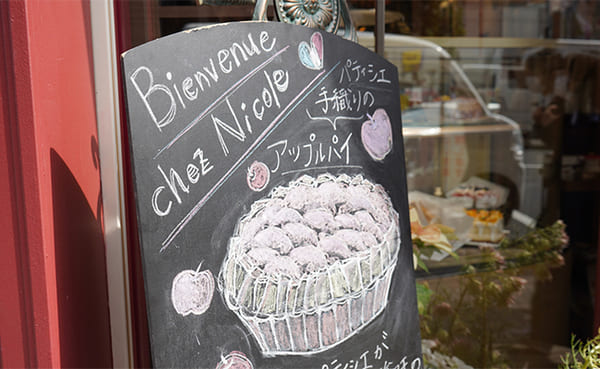 Bienvenue
chez Nicole
パティシェ
手織りの
アップルパイ
パティシェが